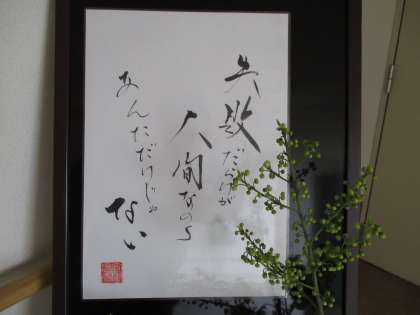 失敗だらけが
人间なのら
あんただけじゃ
ない